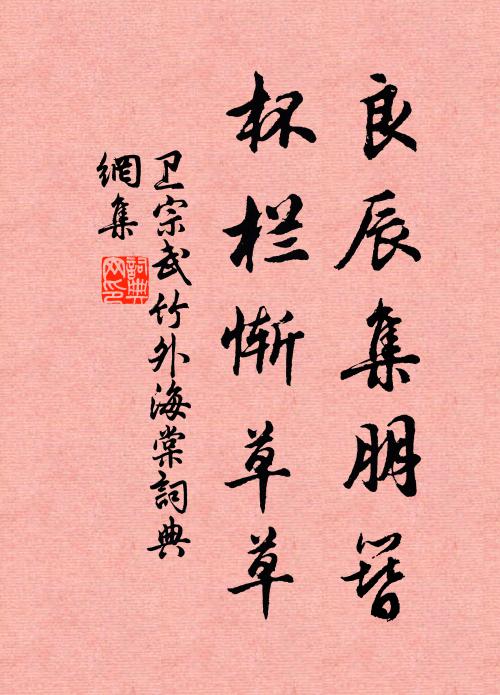 良辰集朋簪
杯栏惭草草
卫宗武竹外海棠詞典
網集
詞典
网印